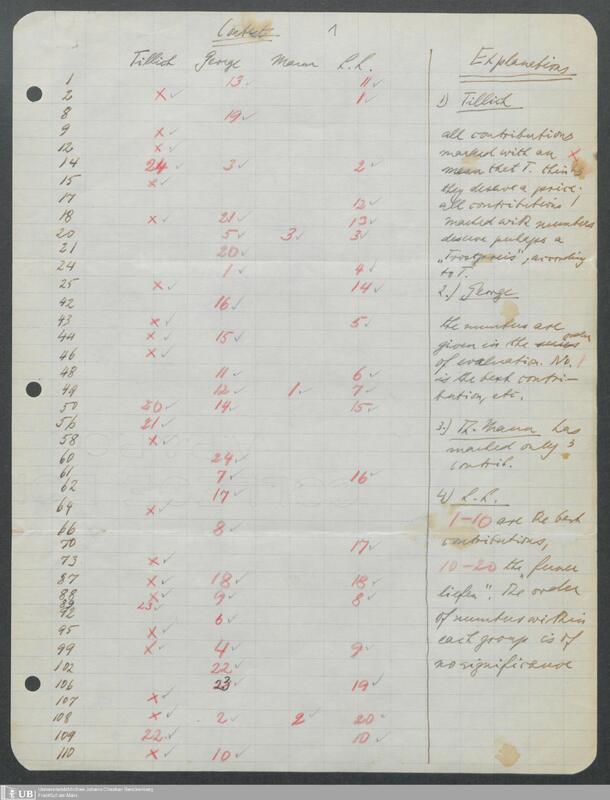 Contest 1
Tillich George Mann L.L.
1 13 ✓ 11 ✓
2 x ✓ 1 ✓
8 19 ✓
9 x ✓
12 x ✓
14 24 ✓ 3 ✓ 2 ✓
15 x ✓
17 12 ✓
18 x ✓ 21 ✓ 13 ✓
20 5 ✓ 3 ✓ 3 ✓
21 20 ✓
24 1 ✓ 4 ✓
25 x ✓ 14 ✓
42 16 ✓
43 x ✓ 5 ✓
44 x ✓ 15 ✓
46 x ✓
48 11 ✓ 6 ✓
49 12 ✓ 1 ✓ 7 ✓
50 20 ✓ 14 ✓ 15 ✓
56 21 ✓
58 x ✓
60 24 ✓
61 7 ✓ 16 ✓
62 17 ✓
64 x ✓
66 8 ✓
70 17 ✓
73 x ✓
87 x ✓ 18 ✓ 18 ✓
88 x ✓ 9 ✓ 8 ✓
89 23 ✓
92 6 ✓
95 x ✓
99 x ✓ 4 ✓ 9 ✓
102 22 ✓
106 23 ✓ 19 ✓
107 x ✓
108 x ✓ 2 ✓ 2 ✓ 20 ✓
109 22 ✓ 10 ✓
110 x ✓ 10 ✓
Explanations
1) Tillich
all contributions
marked with an x
mean that T. thinks
they deserve a price.
all contributions
marked with numbers
deserve perhaps a
"Trostpreis", according
to T.
2.) George
the numbers are
given in the order
of evaluation. No. 1
is the best contri-
bution, etc.
3.) Th. Mann has
marked only 3
contrib.
4) L.L.
1-10 are the best
contributions,
10-20 the "ferner
liefen". The order
of numbers within
each group is of
no significance
UB Universitätsbibliothek Johann Christian Senckenberg
Frankfurt am Main